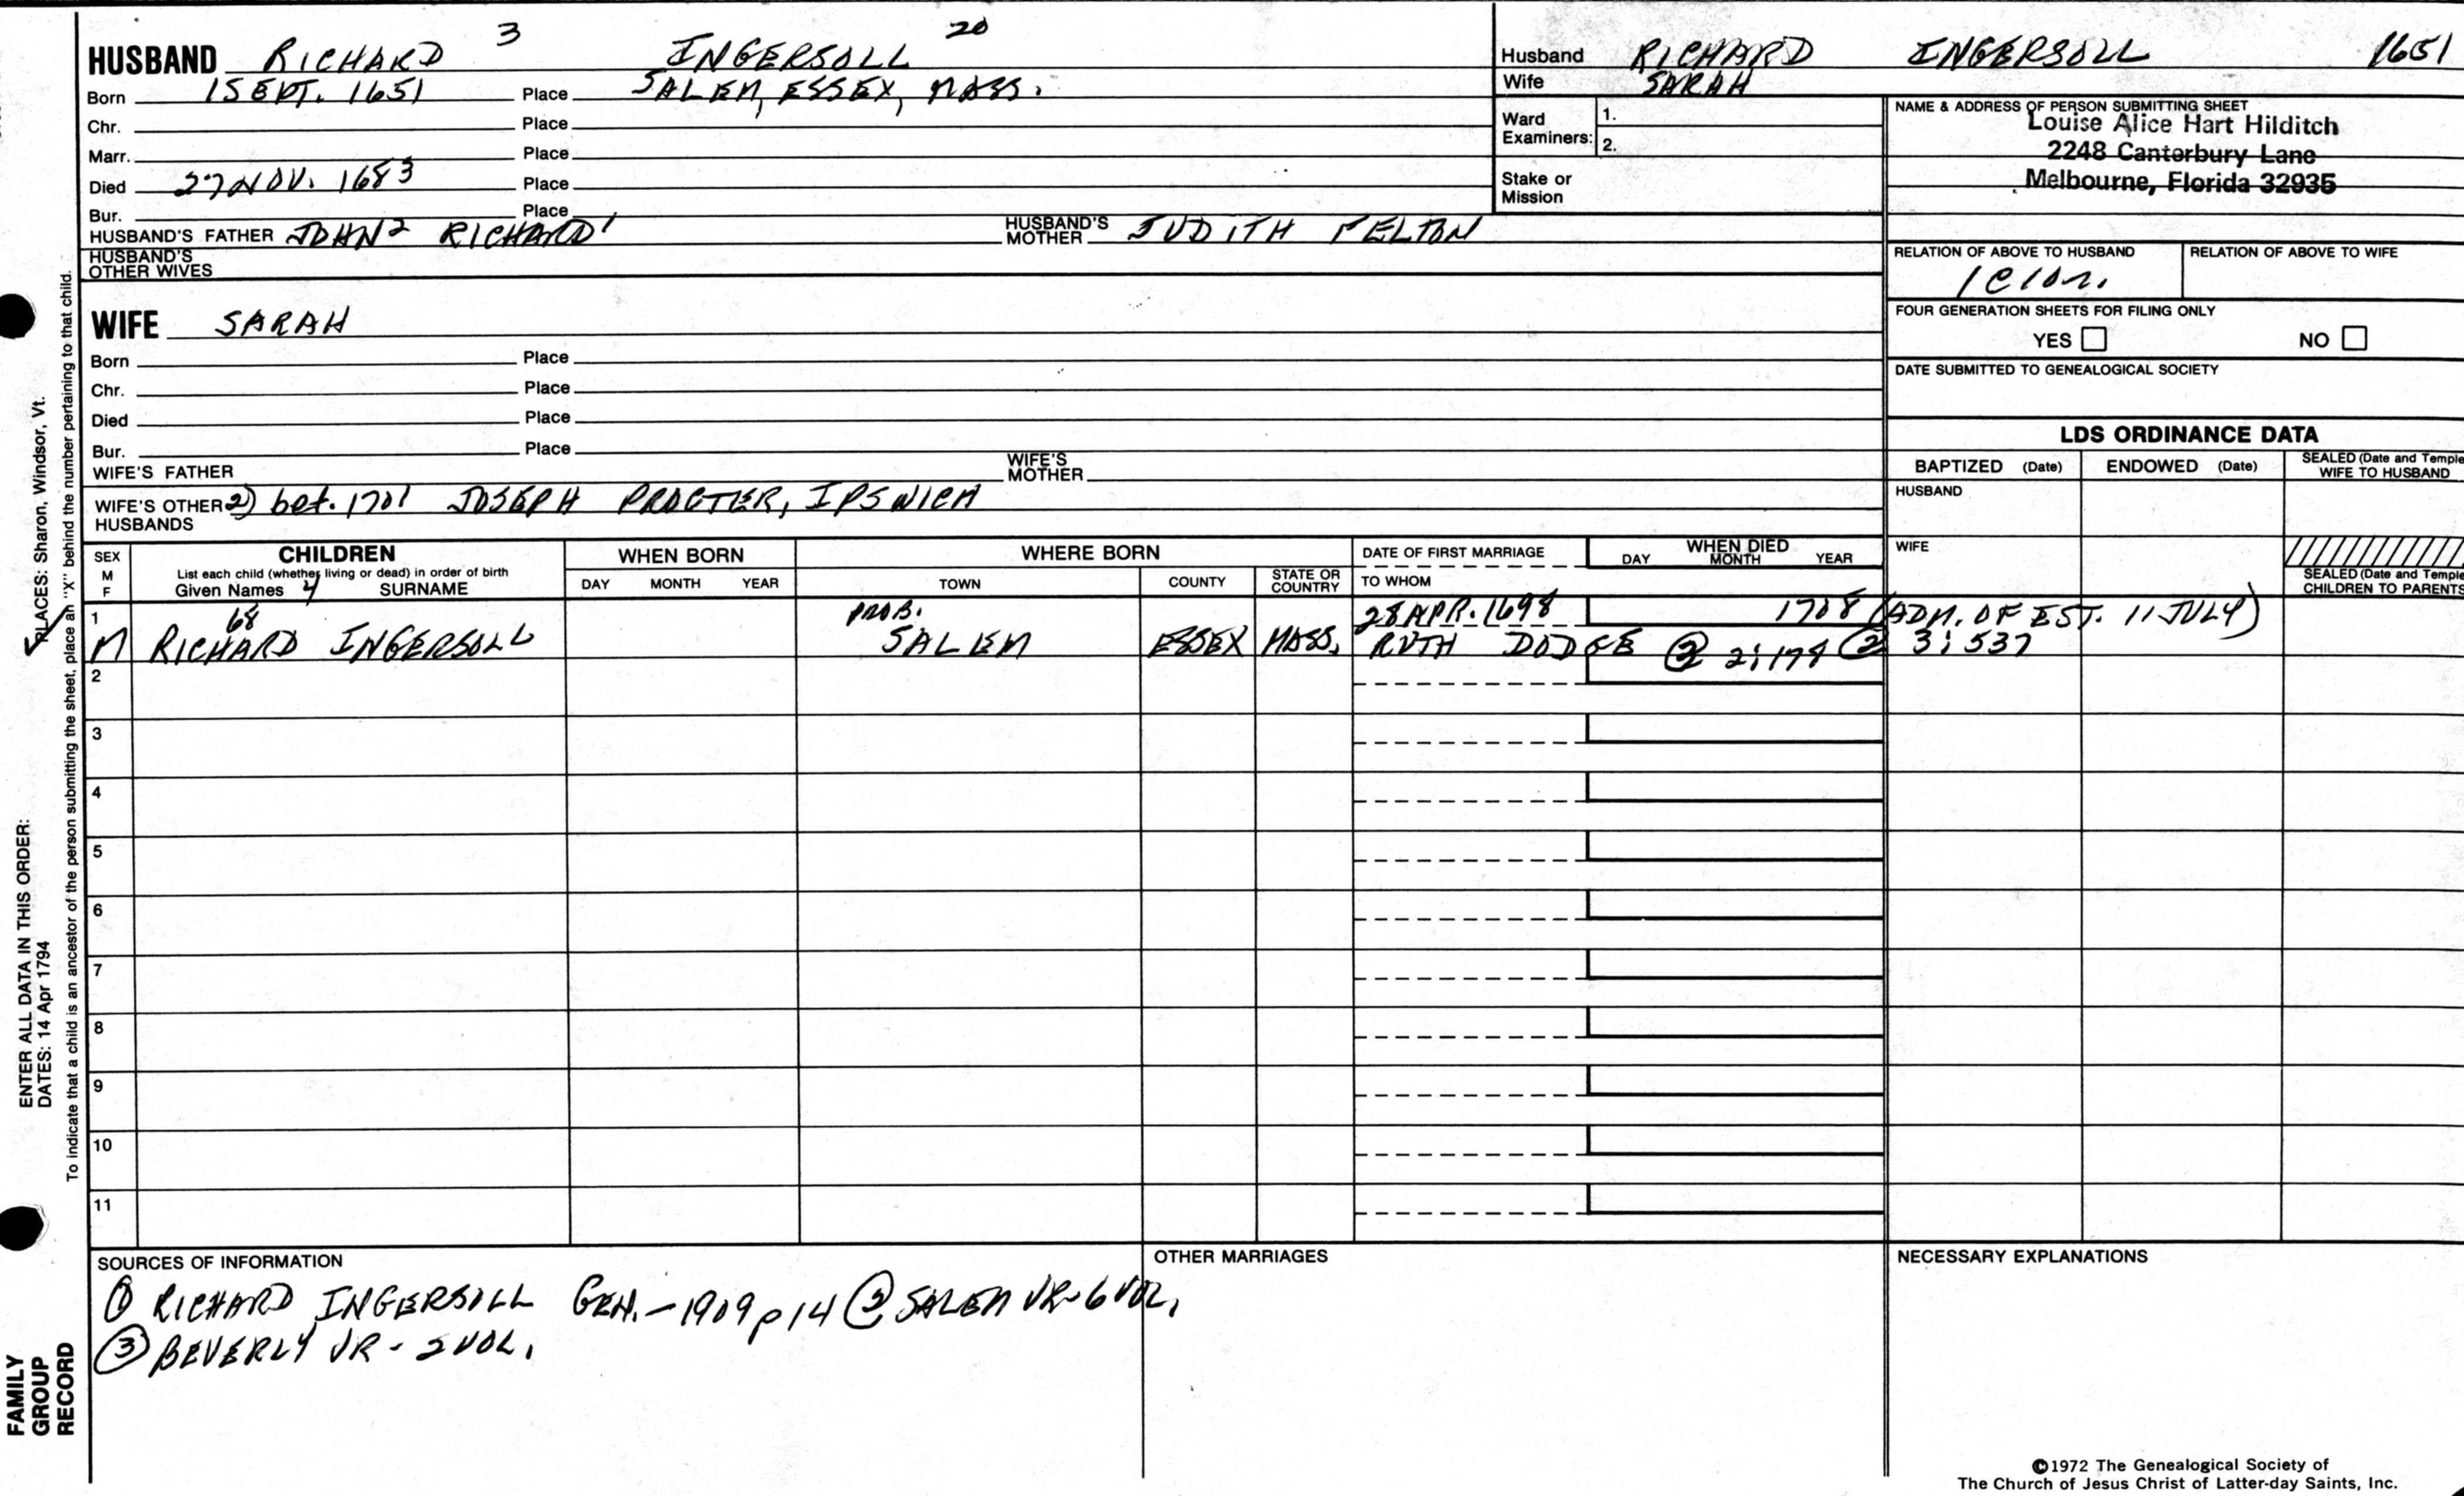 HUSBAND RICHARD 3 INGERSOLL 20
Born 1 SEPT. 1651 Place SALEM, ESSEX, MASS.
Chr. Place
Marr. Place
Died 27 NOV. 1683 Place
Bur. Place
HUSBAND'S FATHER JOHN 2 RICHARD 1 HUSBAND'S MOTHER JUDITH FELTON
HUSBAND'S OTHER WIVES
WIFE SARAH
Born Place
Chr. Place
Died Place
Bur. Place
WIFE'S FATHER WIFE'S MOTHER
WIFE'S OTHER HUSBANDS 2) bef. 1701 JOSEPH PROCTER, IPSWICH
Husband RICHARD INGERSOLL 1651
Wife SARAH
Ward Examiners: 1.
2.
Stake or Mission
NAME & ADDRESS OF PERSON SUBMITTING SHEET
Louise Alice Hart Hilditch
2248 Canterbury Lane
Melbourne, Florida 32935
RELATION OF ABOVE TO HUSBAND RELATION OF ABOVE TO WIFE
FOUR GENERATION SHEETS FOR FILING ONLY
YES NO
DATE SUBMITTED TO GENEALOGICAL SOCIETY
LDS ORDINANCE DATA
BAPTIZED (Date) ENDOWED (Date) SEALED (Date and Temple) WIFE TO HUSBAND
HUSBAND
WIFE
SEALED (Date and Temple) CHILDREN TO PARENTS
SEX M F CHILDREN WHEN BORN WHERE BORN DATE OF FIRST MARRIAGE WHEN DIED
List each child (whether living or dead) in order of birth
Given Names 4 SURNAME DAY MONTH YEAR TOWN COUNTY STATE OR COUNTRY TO WHOM DAY MONTH YEAR
1 68 PROB. 28 APR. 1698 1708 (ADM. OF EST. 11 JULY)
M RICHARD INGERSOLL SALEM ESSEX MASS. RUTH DODGE 3:537
2
3
4
5
6
7
8
9
10
11
SOURCES OF INFORMATION
① RICHARD INGERSOLL GEN. - 1909 p 14 ② SALEM VR - 6 VOL.
③ BEVERLY VR - 2 VOL.
OTHER MARRIAGES
NECESSARY EXPLANATIONS
©1972 The Genealogical Society of
The Church of Jesus Christ of Latter-day Saints, Inc.
ENTER ALL DATA IN THIS ORDER:
DATES: 14 Apr 1794 PLACES: Sharon, Windsor, Vt.
To indicate that a child is an ancestor of the person submitting the sheet, place an "X" behind the number pertaining to that child.
FAMILY
GROUP
RECORD